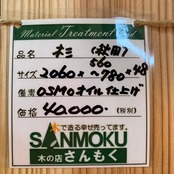 Material Treatment Card
品名 杉(秋田)
560
サイズ 2060×~780×48
備考 OSMOオイル仕上げ
価格 40,000.(税別)
木で造る幸せ売ってます。
SANMOKU
木の店 さんもく